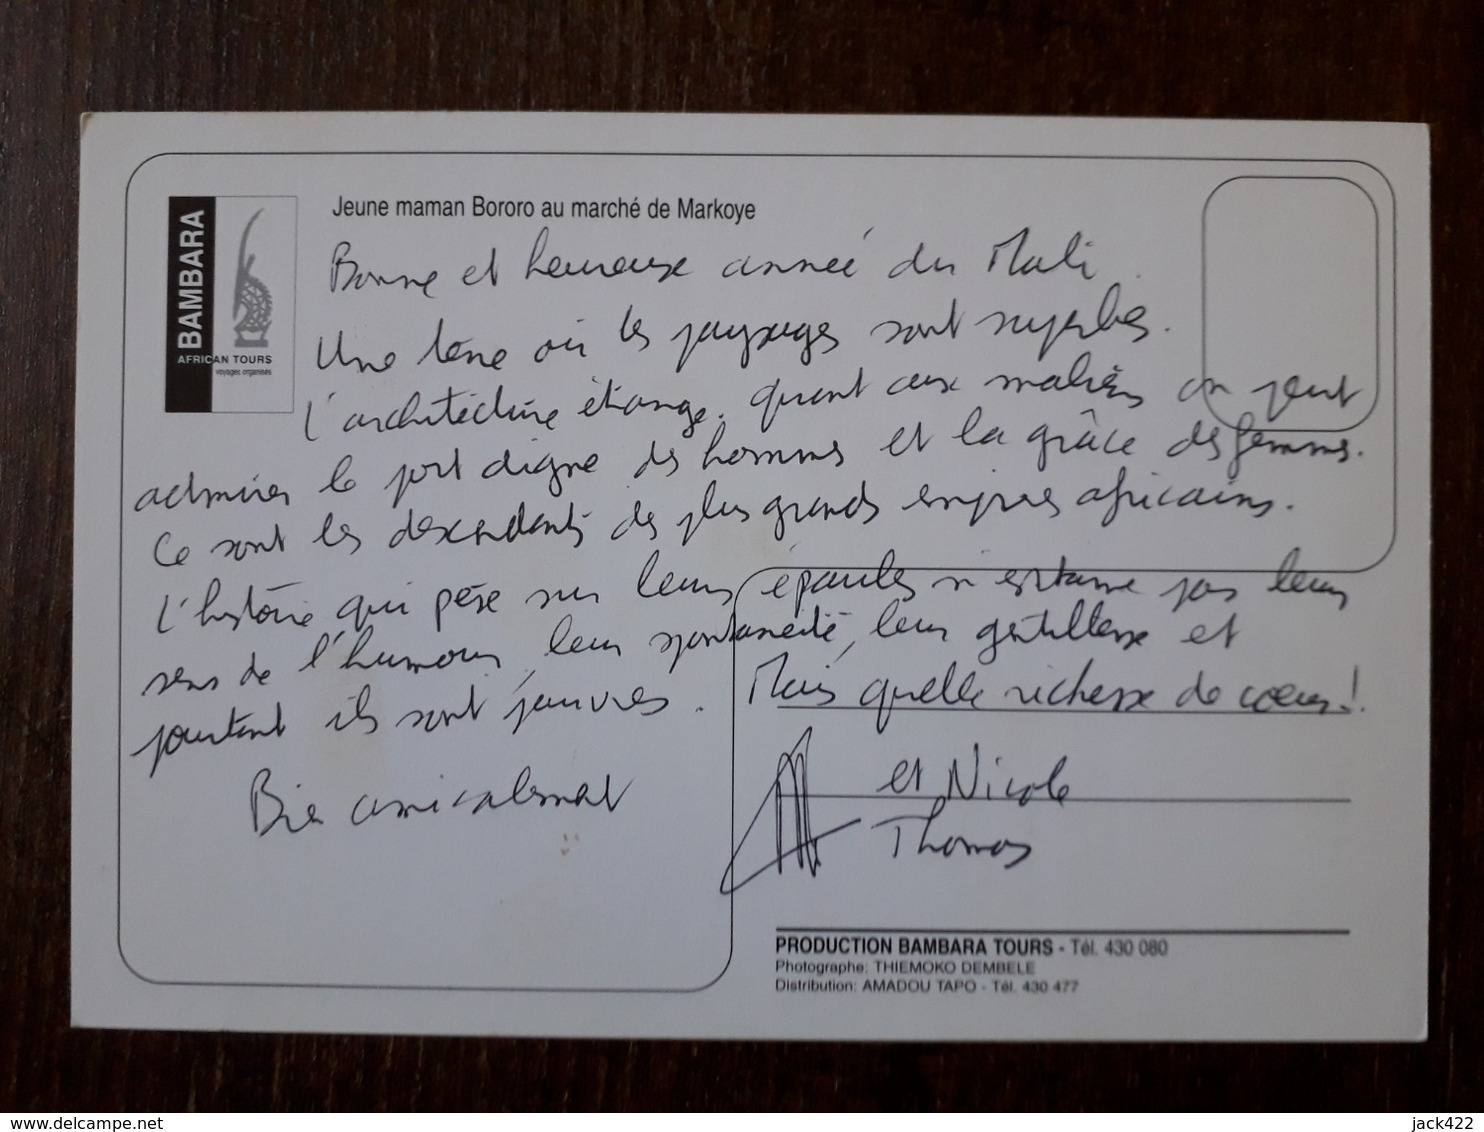 BAMBARA
AFRICAN TOURS
voyages organisés
Jeune maman Bororo au marché de Markoye
Bonne et heureuse année du Mali.
Une terre où les paysages sont superbes.
L'architecture étrange. quant aux maliens on peut
admirer le port digne des hommes et la grâce des femmes.
Ce sont les descendants des plus grands empires africains.
L'histoire qui pèse sur leurs épaules n'entame pas leur
sens de l'humour, leur spontanéité, leur gentillesse et
pourtant ils sont pauvres. Mais quelle richesse de coeur!
Bien amicalement
et Nicole
Thomas
PRODUCTION BAMBARA TOURS - Tél. 430 080
Photographe: THIEMOKO DEMBELE
Distribution: AMADOU TAPO - Tél. 430 477
www.delcampe.net
jack422